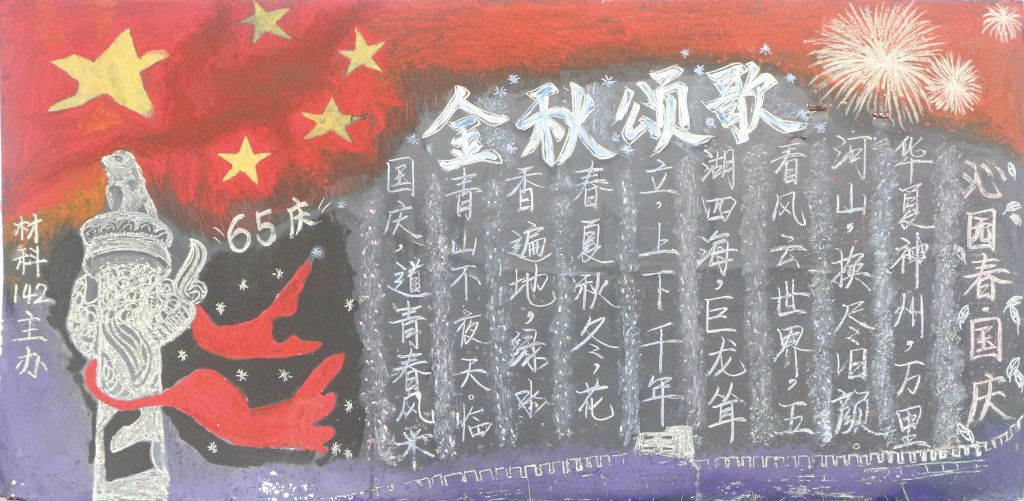 金秋颂歌
沁园春·国庆
华夏神州，万里
河山，换尽旧颜。
看风云世界，五
湖四海，巨龙耸
立，上下千年
春夏秋冬，花
香遍地，绿水
青山不夜天。临
国庆，道青春风采
“65庆”
材料142主办